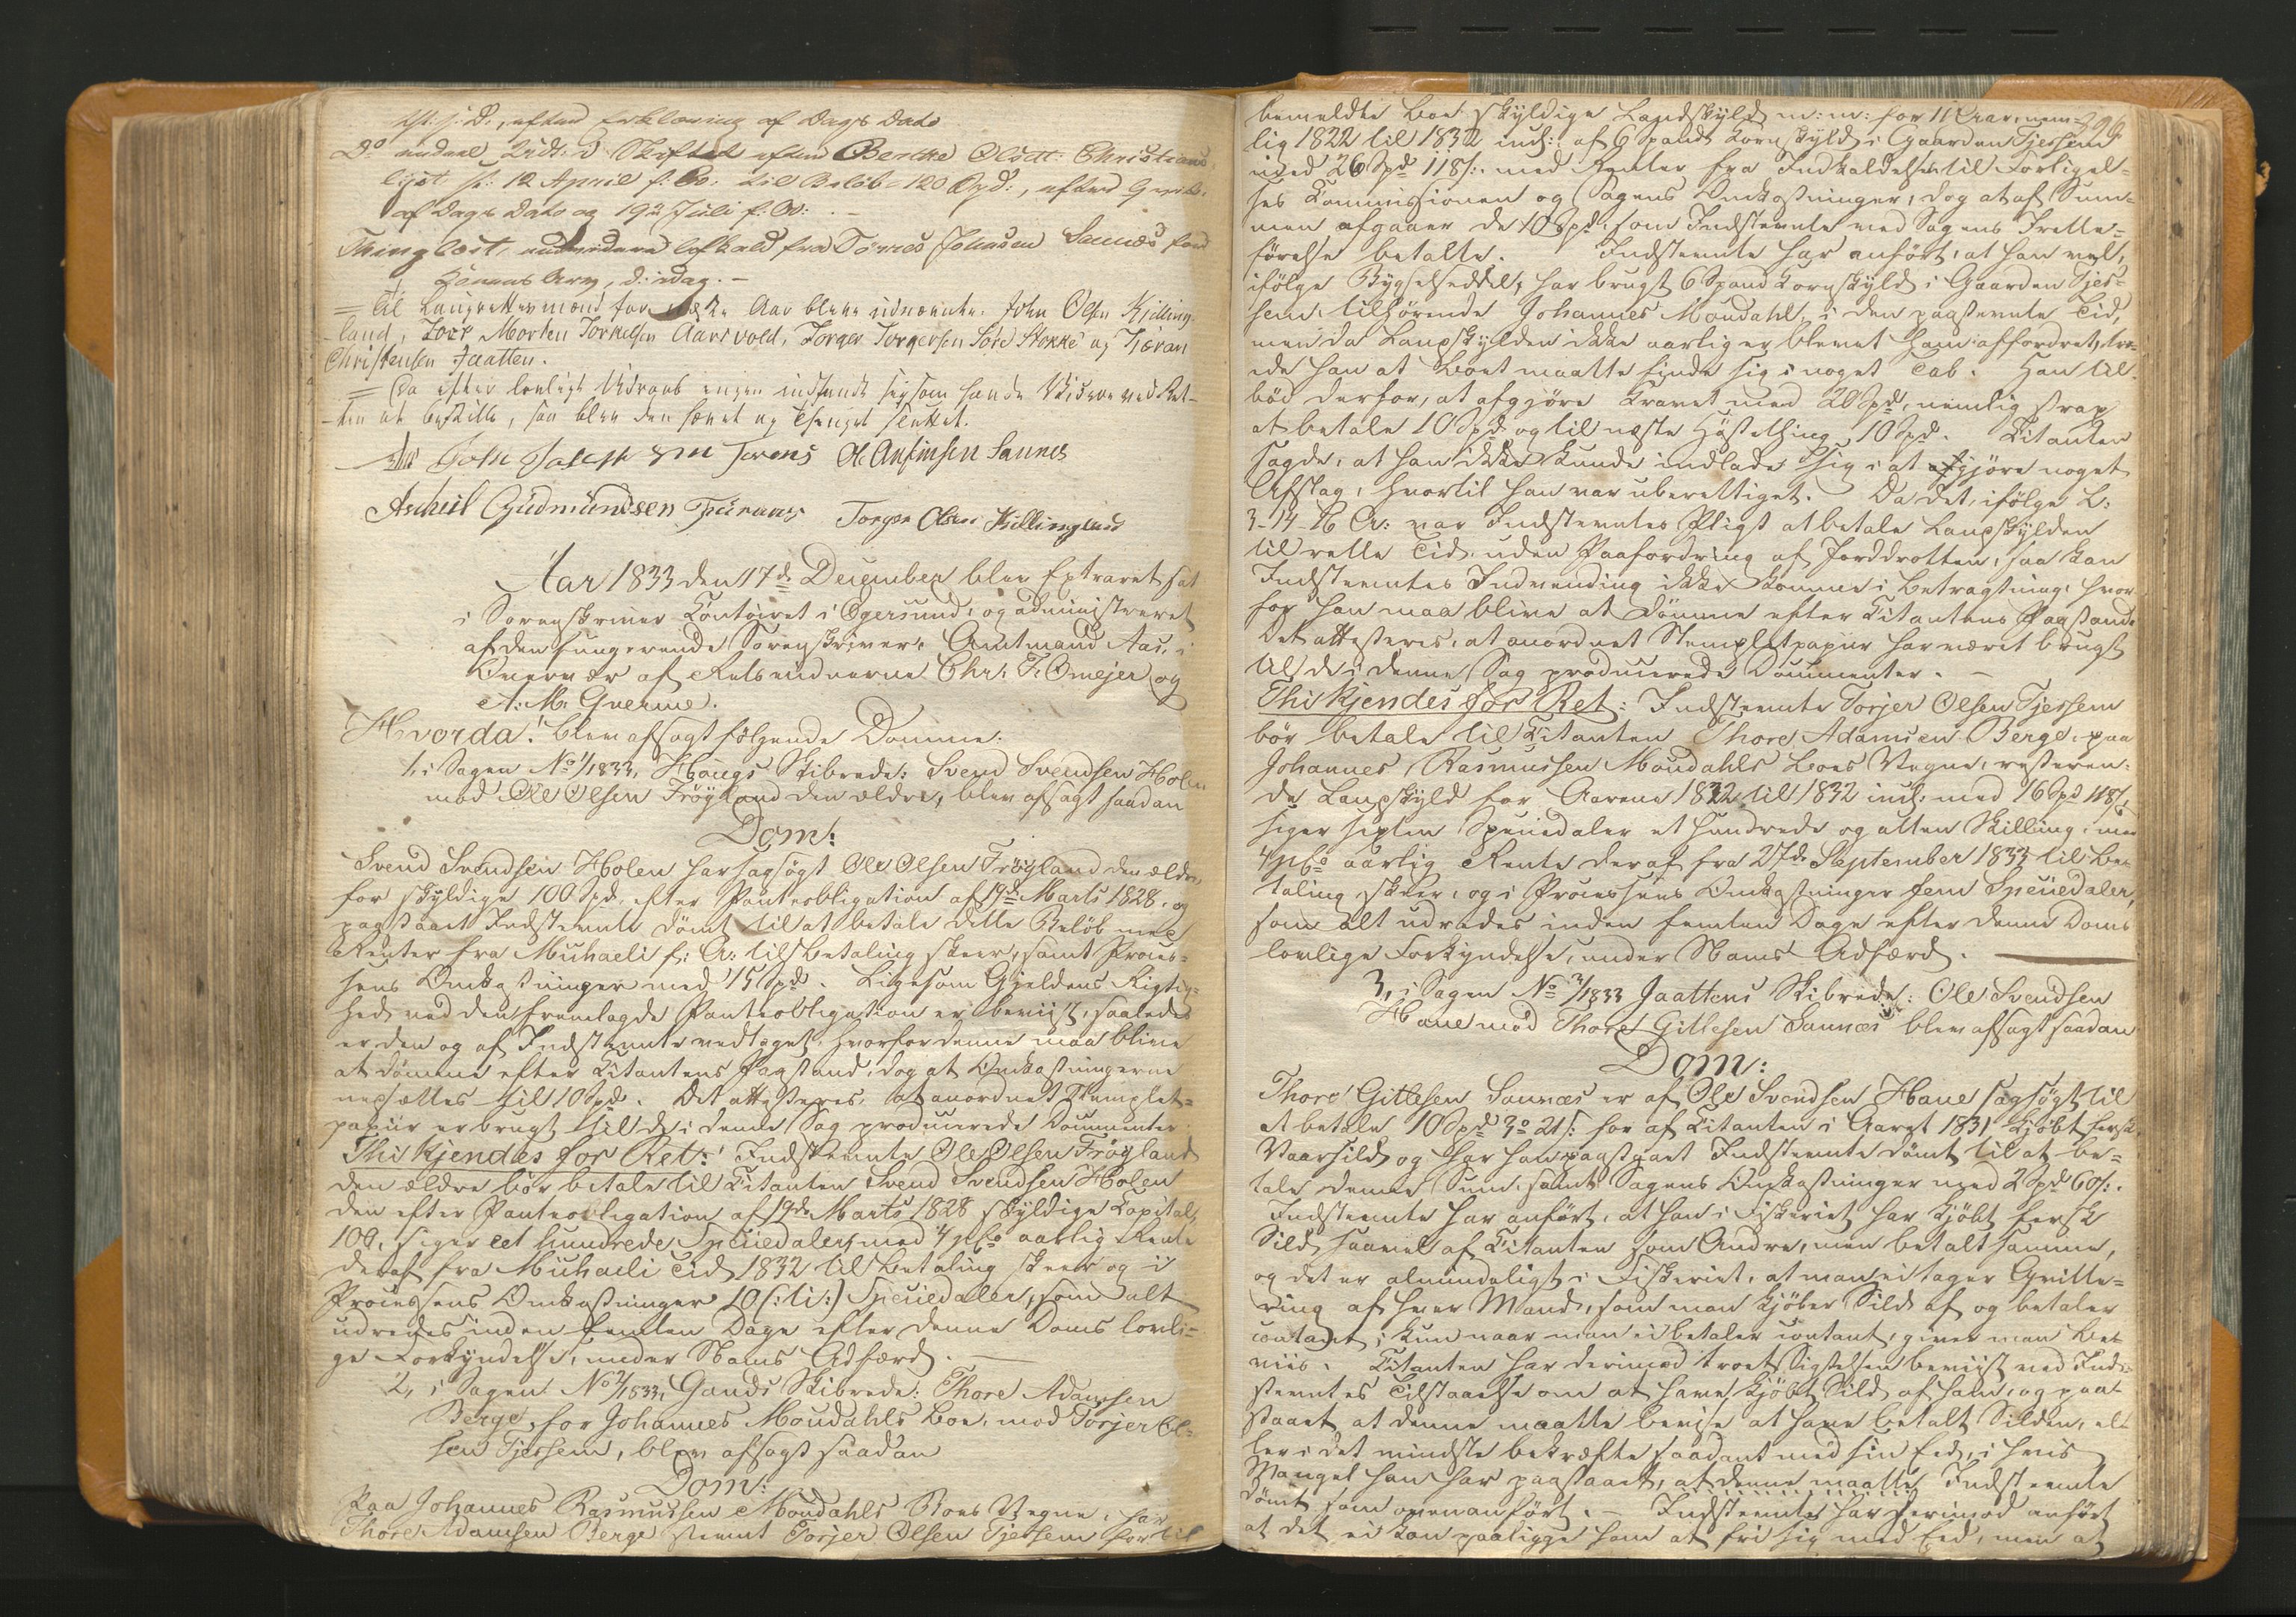 A: s: D., efter Erklæring af Dags Dato
Do. andael Zudt: i Skiftet efter Berthe Olsdt: Christians-
lyst s: 12 April f: A: til Beløb 120 Spd:, efter Qvit:
af Dags Dato og 19de Juli f: A: . -
Thinglæst, Johnsen Sannæs
d: idag. -
= Til Laugrettesmænd for næste Aar bleve udnævnte John Olsen Kjelling-
land, Morten Torkelsen Aarsvold, Torger Torgersen Søre Stokke og Tjøran
Christensen Jaatten.
= Da efter lovligt Udraab ingen indfandt sig som havde Videre ved Ret-
ten at bestille, saa blev den hævet og Thinget sluttet.
Aas Ole Ansinsen Sannes
Aschiil Gudmundsen Torger Olsen Kiellingland
Aar 1833 den 17de December blev Extraret sat
i Sorenskriver Contoiret i Egersund, og administreret
af den fungerende Sorenskriver, Amtmand Aas, i
Overvær af Retsvidnerne Chr: F: Omejer og
A: M: Gverme.
Hvorda! blev afsagt følgende Domme.
1, i Sagen No 1/1833, Haugs Skibrede: Svend Svendsen Holen
mod Ole Olsen Frøyland den ældre, blev afsagt saadan
Dom:
Svend Svendsen Holen har sagsøgt Ole Olsen Frøyland den ældre,
for skyldige 100 Spd. efter Panteobligation af 19de Marts 1828, og
paastaaet Indstevnte dømt til at betale dette Beløb med
Renter fra Michaeli f: A: til Betaling skeer, samt Proces-
sens Omkostninger med 15 Spd. Ligesom Gjældens Rigtig-
hed ved den fremlagde Panteobligation er beviist, saaledes
er den og af Indstevnte vedtaget, hvorfor denne maa blive
at dømme efter Citantens Paastand, dog at Omkostningerne
nedsættes til 10 Spd. Det attesteres, at anordnet Stemplet-
papiir er brugt til de i denne Sag producerede Documenter
Thi kjendes for Ret: Indstevnte Ole Olsen Frøyland
den ældre bør betale til Citanten Svend Svendsen Holen
den efter Panteobligation af 19de Marts 1828 skyldige Capital,
100, siger eet hundrede Speciedaler, med 4 pCo aarlig Rente
deraf fra Michaeli Tid 1832 til Betaling skeer og i
Processens Omkostninger 10 (: ti :) Speciedaler, som alt
udredes inden femten Dage efter denne Doms lovli-
ge Forkyndelse, under Nams Adfærd. -
2, i Sagen No 2/1833, Gands Skibrede: Thore Adamsen
Berge, for Johannes Moudahls Boe, mod Torjer Ol-
sen Tjessem, blev afsagt saadan
Dom:
Paa Johannes Rasmussen Moudahls Boes Vegne, har
Thore Adamsen Berge stevnt Torjer Olsen Tjessem for til
296.
bemeldte Boe skyldige Landskyld m: m: for 11 Aar, nem-
lig 1822 til 1832 incl: af 6 Spands Kornskyld i Gaarden Tjessem
med 26 Spd 118 s: med Renter fra Indkaldelsen til Forligel-
ses Commissionen og Sagens Omkostninger, dog at af Sum-
men afgaaer de 10 Spd. som Indstevnte ved Sagens Frette-
førelse betalte. Indstevnte har anført, at han vel,
ifølge Bygselseddel, har brugt 6 Spand Kornskyld i Gaarden Tjes-
sem, tilhørende Johannes Moudahl, i den paastevnte Tid,
men da Landskylden ikke aarlig er blevet ham affordret, tro-
ede han at Boet maatte finde sig i noget Tab. Han til-
bød derfor, at afgjøre Kravet med 20 Spd, nemlig strax
at betale 10 Spd og til næste Høstething 10 Spd. Citanten
sagde, at han ikke kunde indlade sig i at afgjøre noget
Afslag, hvortil han var uberettiget. Da det, ifølge L:
3-14-16 A: var Indstevntes Pligt at betale Landskylden
til rette Tid, uden Paafordring af Jorddrotten, saa kan
Indstevntes Indvending ikke komme i Betragtning, hvor-
for han maa blive at dømme efter Citantens Paastand.
Det attesteres, at anordnet Stempletpapiir har været brugt
til de i denne Sag producerede Documenter. -
Thi kjendes for Ret: Indstevnte Torjer Olsen Tjessem
bør betale til Citanten Thore Adamsen Berge, paa
Johannes Rasmussen Moudahls Boes Vegne, resteren-
de Landskyld for Aarene 1822 til 1832 incl: med 16 Spd 118 s,
siger sexten Speciedaler et hundrede og atten Skilling, med
4 pCo aarlig Rente deraf fra 27de September 1833 til Be-
taling skeer, og i Processens Omkostninger fem Speciedaler,
som alt udredes inden femten Dage efter denne Doms
lovlige Forkyndelse, under Nams Adfærd.
3, i Sagen No 3/1833 Jaattens Skibrede: Ole Svendsen
Hane mod Thore Gitlesen Sannæs blev afsagt saadan
Dom:
Thore Gitlesen Sannæs er af Ole Svendsen Hane sagsøgt til
at betale 10 Spd 3o 21 s: for af Citanten i Aaret 1831 kjøbt fersk
Vaarsild og har han paastaaet Indstevnte dømt til at be-
tale denne Sum, samt Sagens Omkostninger med 2 Spd 60 s:.
Indstevnte har anført, at han i Fiskeriet har kjøbt fersk
Sild saavel af Citanten som Andre, men betalt samme,
og det er almindeligt i Fiskeriet, at man ei tager Qvitte-
ring af hver Mand, som man kjøber Sild af og betaler
contant; kun naar man ei betaler contant, giver man Be-
viis. Citanten har derimod troet Sigtelsen beviist ved Ind-
stevntes Tilstaaelse om at have kjøbt Sild af ham, og paa-
staaet at denne maatte bevise at have betalt Silden, el-
ler i det mindste bekræfte saadant med sin Eed, i hvis
Mangel han har paastaaet, at denne maatte Indstevnte
dømt som ovenanført. - Indstevnte har derimod anført
at det ei kan paaligge ham at fri sig med Eed, men at